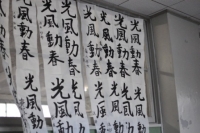 光風動春
光風動春
光風動春
光風動春
光風動春
光風動
光風動春
光風動春